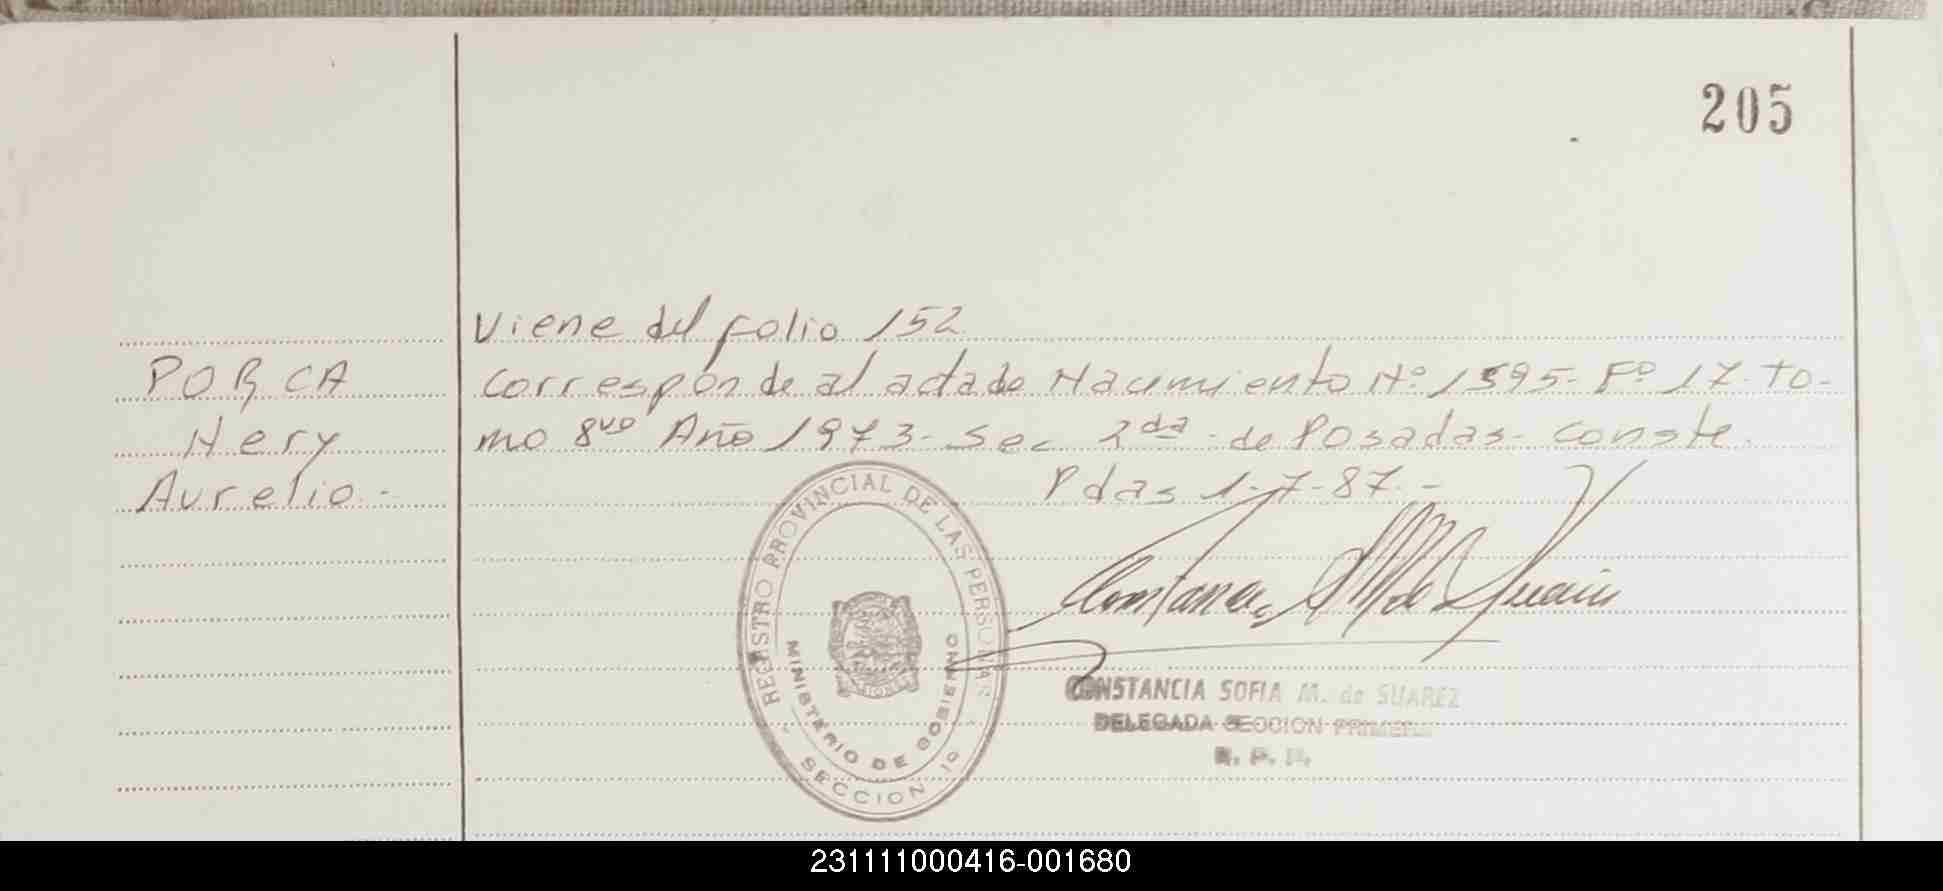 205
Viene del folio 152
PORCA
Nery
Aurelio.-
corresponde al acta de Nacimiento Nº 1595- Fº 17. To-
mo 8vo Año 1973- Sec 2da - de Posadas- conste.
Pdas 1-7-87.-
REGISTRO PROVINCIAL DE LAS PERSONAS
MINISTERIO DE GOBIERNO
SECCION 1º
CONSTANCIA SOFIA M. de SUAREZ
DELEGADA SECCION PRIMERA
R. P. P.
231111000416-001680